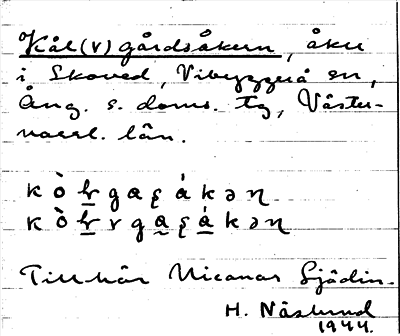 Kål(v)gårdsåkern, åker
i Skoved, Vibyggerå sn,
Ång. s. doms. tg, Väster-
norrl. län.
Tillhör Nicanor Sjödin.
H. Näslund
1944.